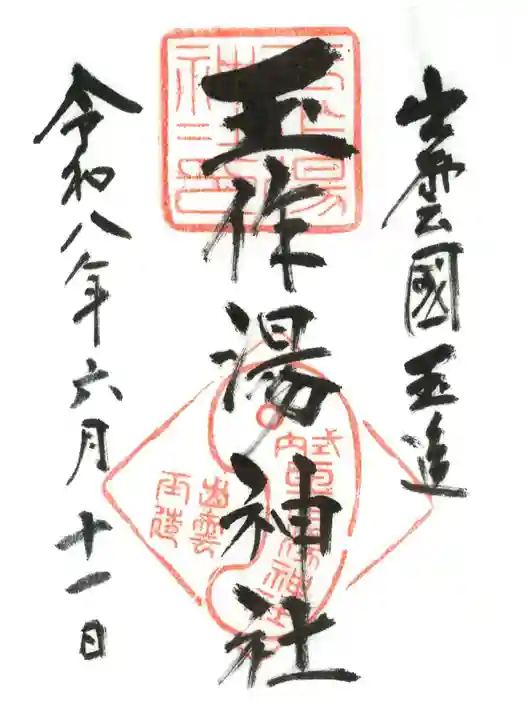 出雲國玉造
玉作湯神社
令和八年六月十一日
玉作湯神社印
式内
出雲
玉造